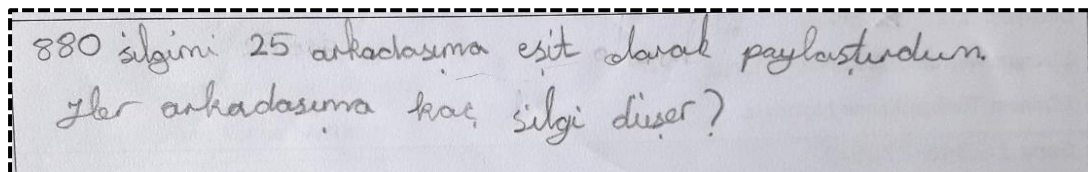 880 silgimi 25 arkadaşıma eşit olarak paylaştırdım.
Her arkadaşıma kaç silgi düşer?